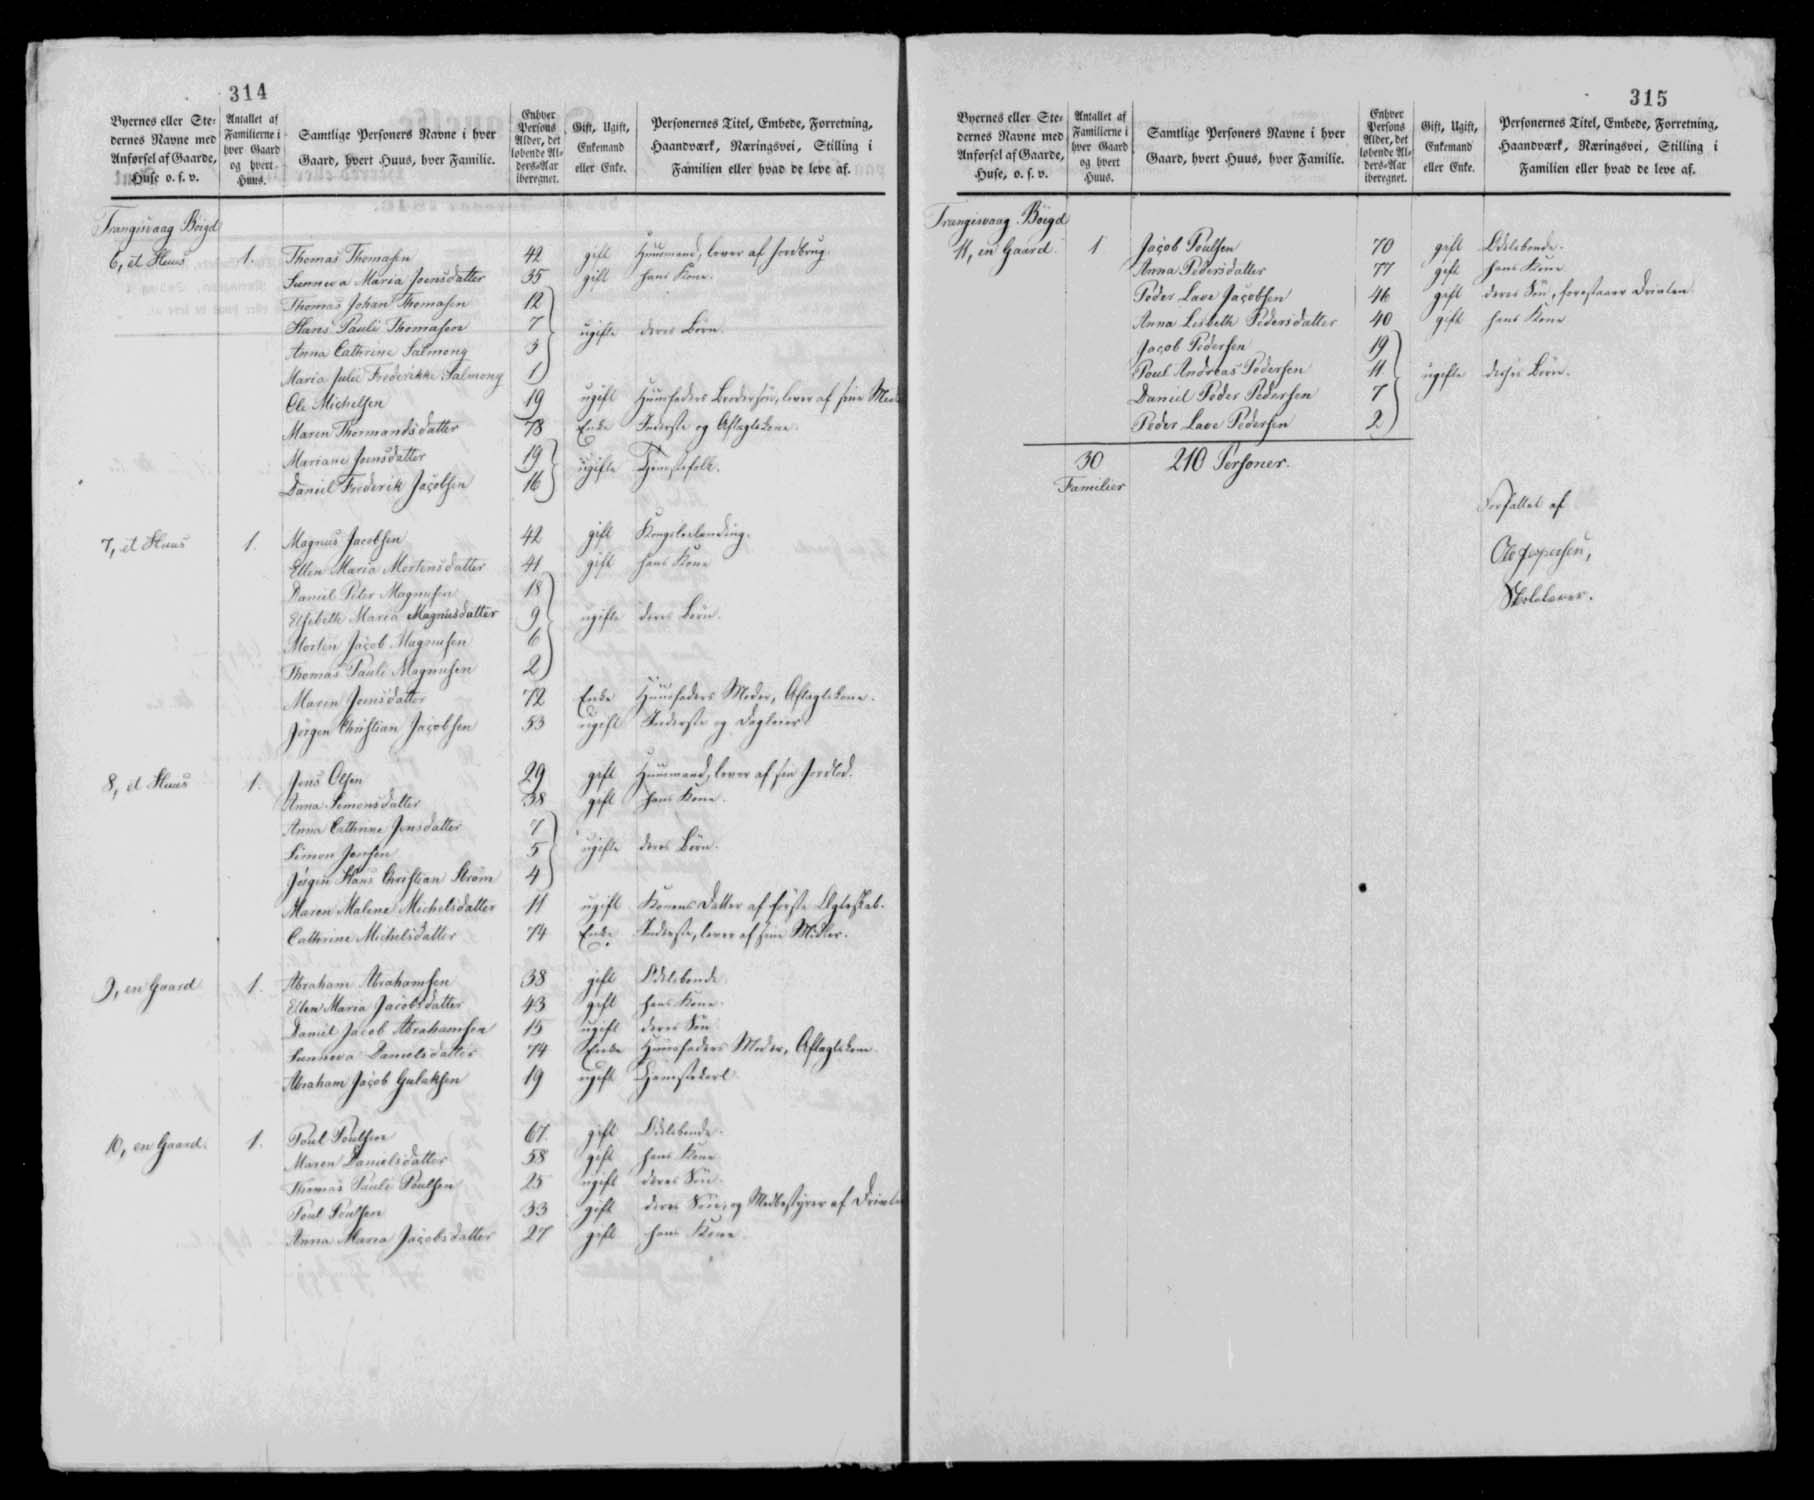 314
Byernes eller Ste-
dernes Navne med
Anførsel af Gaarde,
Huse o. s. v.
Antallet af
Familierne i
hver Gaard
og hvert
Huus.
Samtlige Personers Navne i hver
Gaard, hvert Huus, hver Familie.
Enhver
Persons
Alder, det
løbende Al-
ders-Aar
iberegnet.
Gift, Ugift,
Enkemand
eller Enke.
Personernes Titel, Embede, Forretning,
Haandværk, Næringsvei, Stilling i
Familien eller hvad de leve af.
Trangisvaag Böigd
6, et Huus 1. Thomas Thomasen 42 gift Huusmand, lever af Jordbrug.
Sunneva Maria Joensdatter 35 gift hans Kone.
Thomas Johan Thomasen 12
Hans Pauli Thomasen 7 ugifte deres Börn.
Anna Cathrine Salmong 3
Maria Julie Frederikke Salmong 1
Ole Michelsen 19 ugift Huusfaders Brodersön, lever af sine
Maren Thormandsdatter 78 Enke Inderste og Aftægtskone.
Mariane Joensdatter 19 ugifte Tjenestefolk.
Daniel Frederik Jacobsen 16
7, et Huus 1. Magnus Jacobsen 42 gift
Ellen Maria Mortensdatter 41 gift hans Kone
Daniel Peter Magnusen 18
Elsebeth Maria Magnusdatter 9 ugifte deres Börn.
Morten Jacob Magnusen 6
Thomas Pauli Magnusen 2
Maren Joensdatter 72 Enke Huusfaders Moder, Aftægtskone.
Jørgen Christian Jacobsen 53 ugift Inderste og Dagleier
8, et Huus 1. Jens Olsen 29 gift Huusmand, lever af sin Jordlod.
Anna Simonsdatter 38 gift hans Kone.
Anna Cathrine Jensdatter 7
Simon Jensen 5 ugifte deres Börn.
Jørgen Hans Christian Strøm 4
Maren Malene Michelsdatter 11 ugift Konens Datter af förste Ægteskab.
Cathrine Michelsdatter 74 Enke Inderste, lever af sine Midler.
9, en Gaard 1. Abraham Abrahamsen 38 gift Odelsbonde
Ellen Maria Jacobsdatter 43 gift hans Kone.
Daniel Jacob Abrahamsen 15 ugift deres Sön
Sunneva Danielsdatter 74 Enke Huusfaders Moder, Aftægtskone.
Abraham Jacob Gulaksen 19 ugift Tjenestekarl
10, en Gaard. 1. Poul Poulsen 67. gift Odelsbonde.
Maren Danielsdatter 58 gift hans Kone
Thomas Pauli Poulsen 25 ugift deres Sön.
Poul Poulsen 33 gift deres Sön, og Medbestyrer af Driften
Anna Maria Jacobsdatter 27 gift hans Kone.
315
Byernes eller Ste-
dernes Navne med
Anførsel af Gaarde,
Huse, o. s. v.
Antallet af
Familierne i
hver Gaard
og hvert
Huus.
Samtlige Personers Navne i hver
Gaard, hvert Huus, hver Familie.
Enhver
Persons
Alder, det
løbende Al-
ders-Aar
iberegnet.
Gift, Ugift,
Enkemand
eller Enke.
Personernes Titel, Embede, Forretning,
Haandværk, Næringsvei, Stilling i
Familien eller hvad de leve af.
Trangisvaag Böigd
11, en Gaard. 1 Jacob Poulsen 70 gift Odelsbonde.
Anna Pedersdatter 77 gift hans Kone
Peder Lave Jacobsen 46 gift deres Sön, forestaaer Driften
Anna Lisbeth Pedersdatter 40 gift hans Kone
Jacob Pedersen 19
Poul Andreas Pedersen 11 ugifte disses Börn.
Daniel Peder Pedersen 7
Peder Lave Pedersen 2
30 210 Personer.
Familier
Forfattet af
Ole Jespersen,